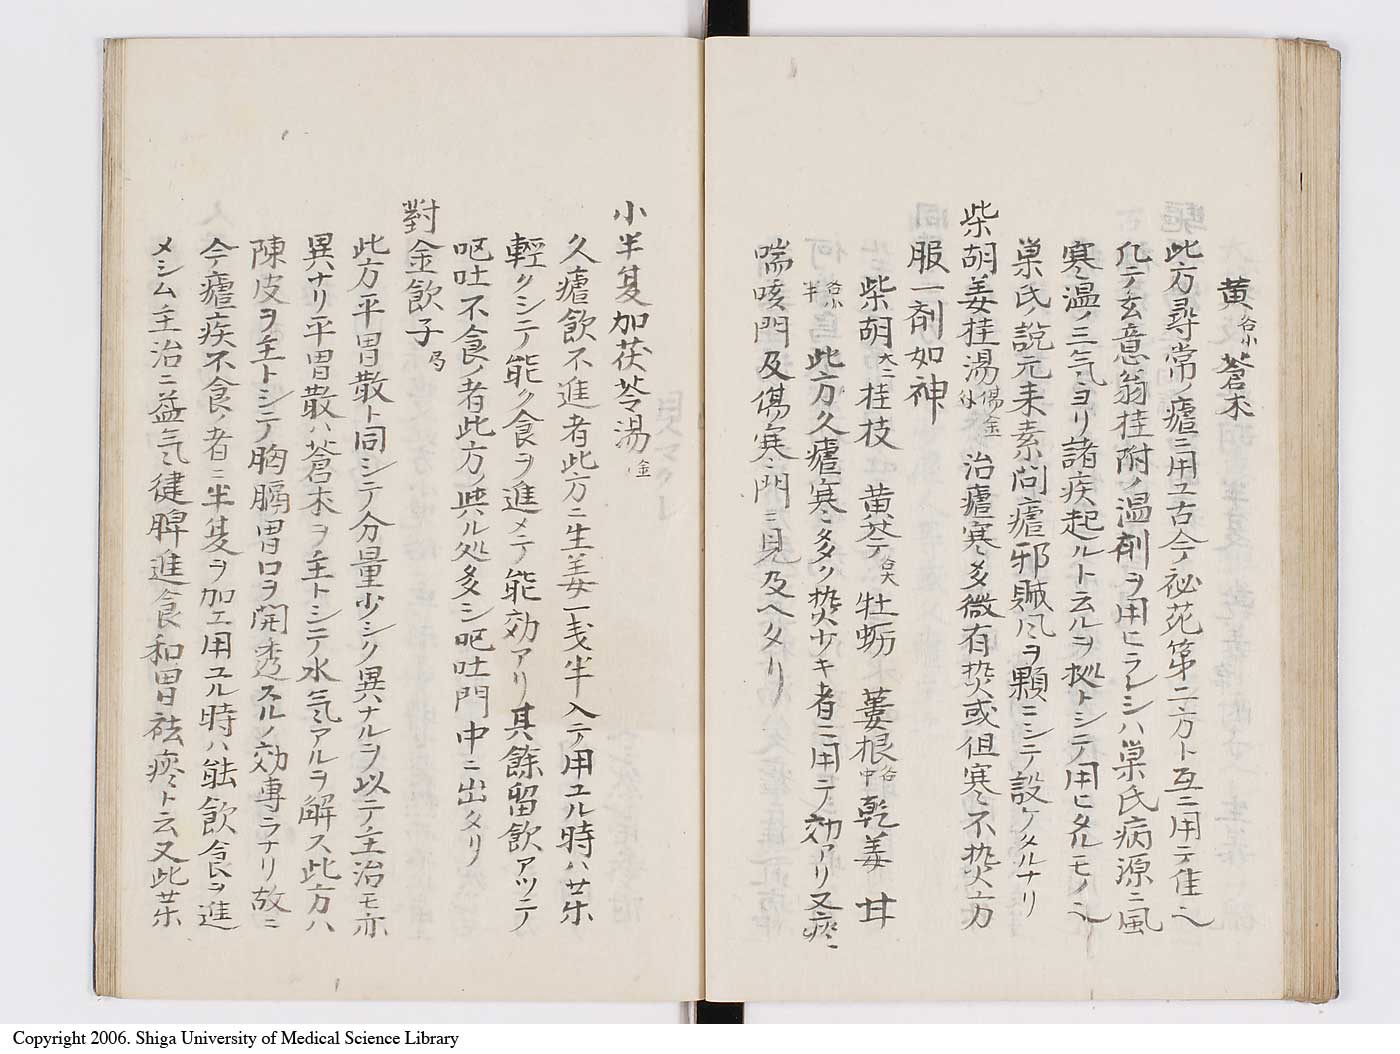 黄 各小 蒼朮
此方尋常ノ瘧ニ用ユ古今秘苑第二方ト互ニ用テ佳也
凡テ玄意翁桂附ノ温剤ヲ用ヒラレシハ巣氏病源ニ風
寒温ノ三気ヨリ諸疾起ルト云ルヲ拠トシテ用ヒタルモノ也
巣氏ノ説元来素問瘧邪賊風ヲ顆ニシテ設ケタルナリ
柴胡姜桂湯 傷金 外 治瘧寒多微有熱或但寒不熱方
服一剤如神
柴胡 大二 桂枝 黄芩 各大 牡蛎 蔞根 各中 乾姜 甘
各小半 此方久瘧寒多ク熱少キ者ニ用テ効アリ又痰
喘咳門及傷寒門ニ見及ヘタリ
小半夏加茯苓湯 金
久瘧飲不進者此方ニ生姜一戔半入テ用ユル時ハ甘味
軽クシテ能ク食ヲ進メテ能効アリ其餘留飲アツテ
呕吐不食ノ者此方ノ典ル処多シ呕吐門中ニ出タリ
對金飲子 局
此方平胃散ト同シテ分量少シク異ナルヲ以テ主治モ亦
異ナリ平胃散ハ蒼朮ヲ主トシテ水気アルヲ解ス此方ハ
陳皮ヲ主トシテ胸膈胃口ヲ開透スルノ効専ラナリ故ニ
今瘧疾不食ノ者ニ半夏ヲ加エ用ユル時ハ能飲食ヲ進
メシム主治ニ益気健脾進食和胃祛痰ト云又此